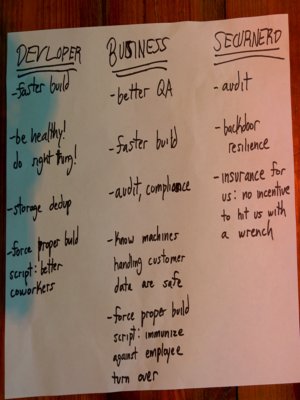 DEVLOPER
-faster build
-be healthy!
do right thing!
-storage dedup
-force proper build
script: better
coworkers
BUSINESS
-better QA
-faster build
-audit, compliance
-Know machines
handing customer
data are safe
-force proper build
script: immunize
against employee
turn over
SECURNERD
-audit
-backdoor
resilience
-insurance for
us: no incentive
to hit us with
a wrench